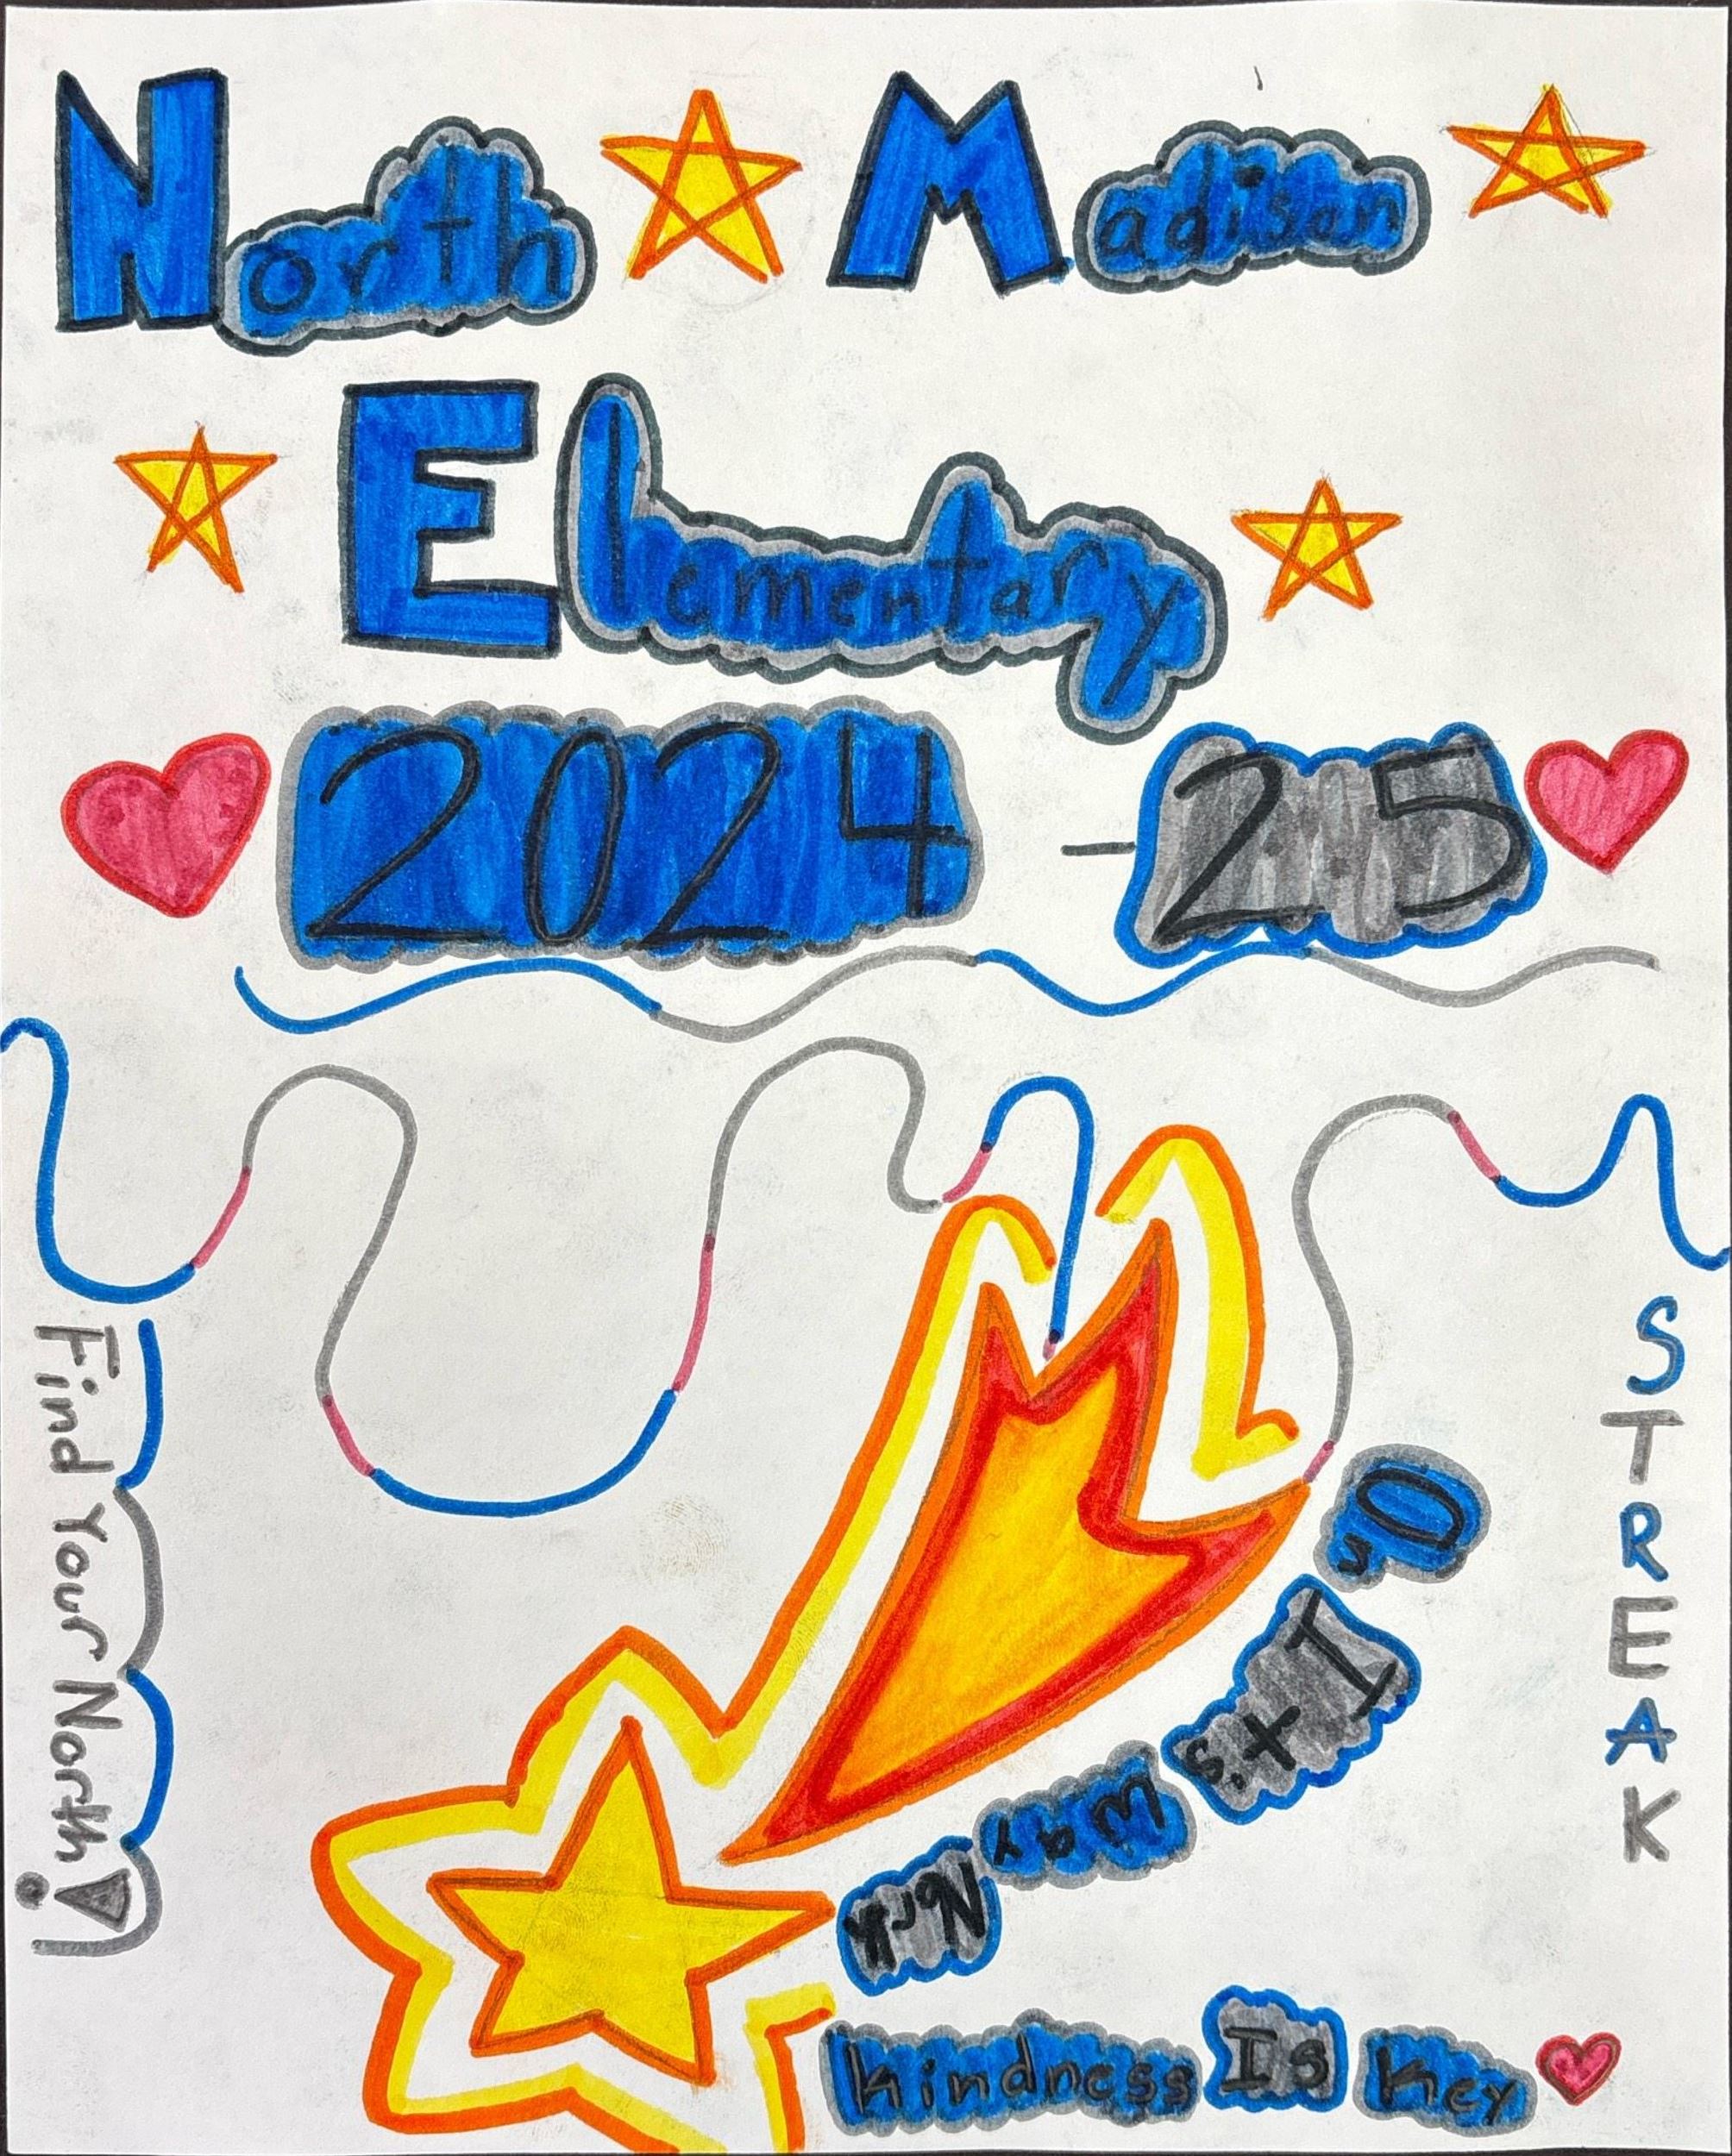 North Madison
Elementary
2024 - 25
STREAK
Find Your North!
On
It's
Way
kindness Is Key